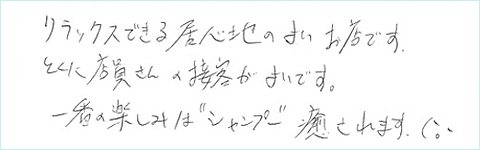 リラックスできる居心地のよいお店です.
とくに店員さんの接客がよいです。
一番の楽しみは"シャンプー" 癒されます. (^^